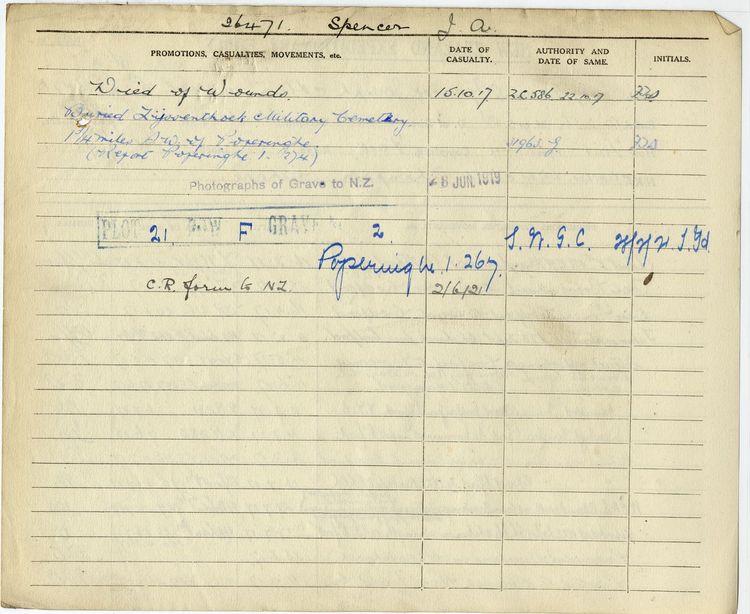 26471. Spencer J. A.
PROMOTIONS, CASUALTIES, MOVEMENTS, etc. DATE OF CASUALTY. AUTHORITY AND DATE OF SAME. INITIALS.
Died of Wounds. 15.10.17 22.10.17
Buried Lijssenthoek Military Cemetery.
1¾ miles S.W. of Poperinghe.
(Report Poperinghe 1.
Photographs of Grave to N.Z. 28 JUN 1919
PLOT 21 ROW F GRAVE 2
Poperinghe. 1. 267.
C.R. form to N.Z. 2/6/21